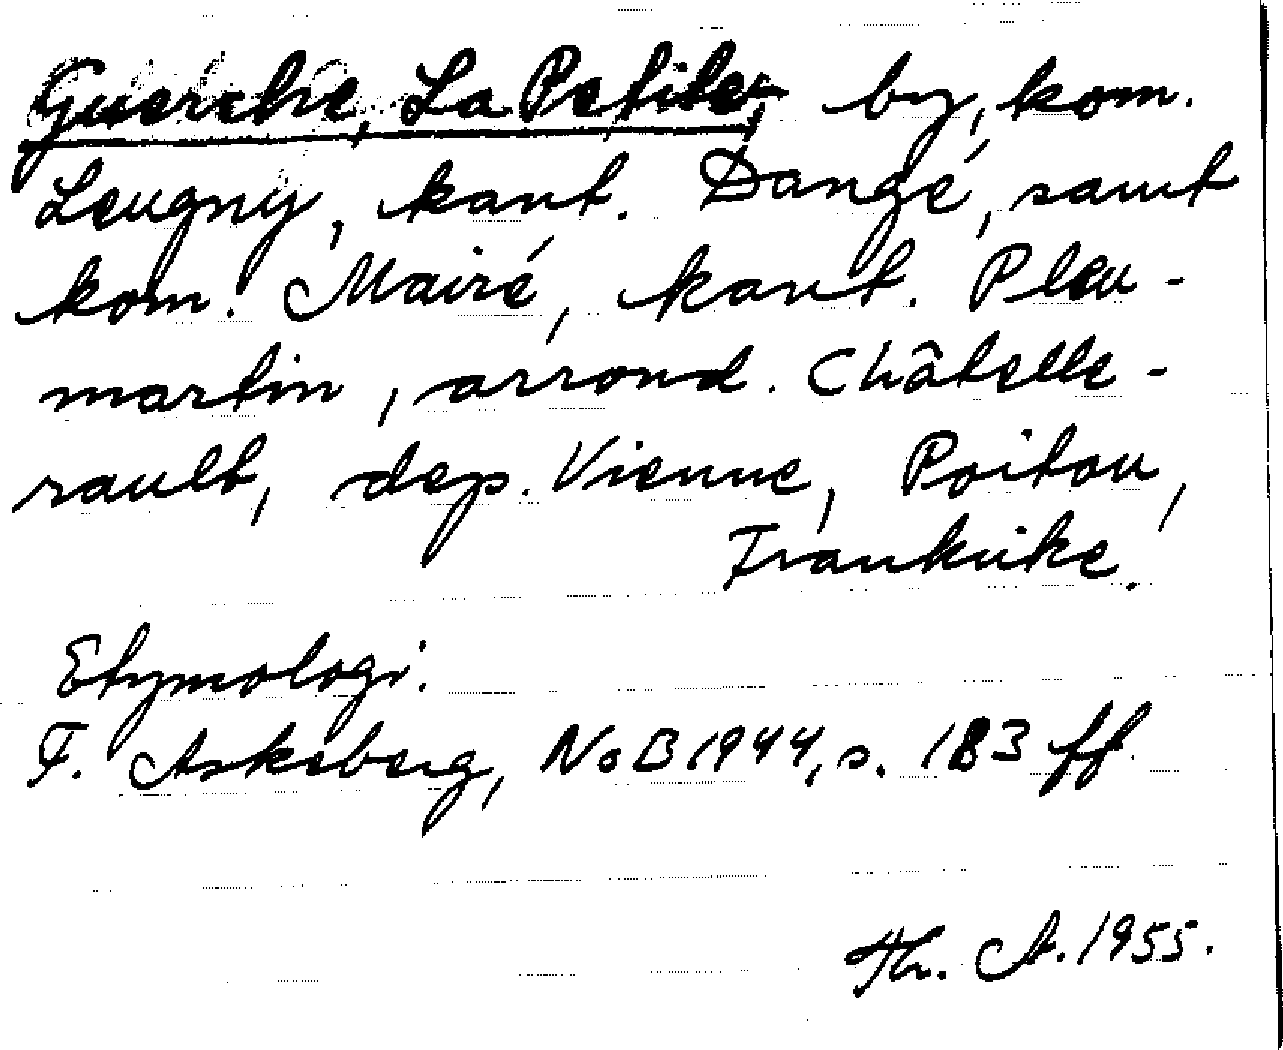 Guerche, La Petite, by, kom.
Leugny, kant. Dangé, samt
kom. Mairé, kant. Pleu-
martin, arrond. Châtelle-
rault, dep. Vienne, Poitou,
Frankrike.
Etymologi:
F. Askeberg, NoB 1944, s. 183 ff.
Th. A. 1955.